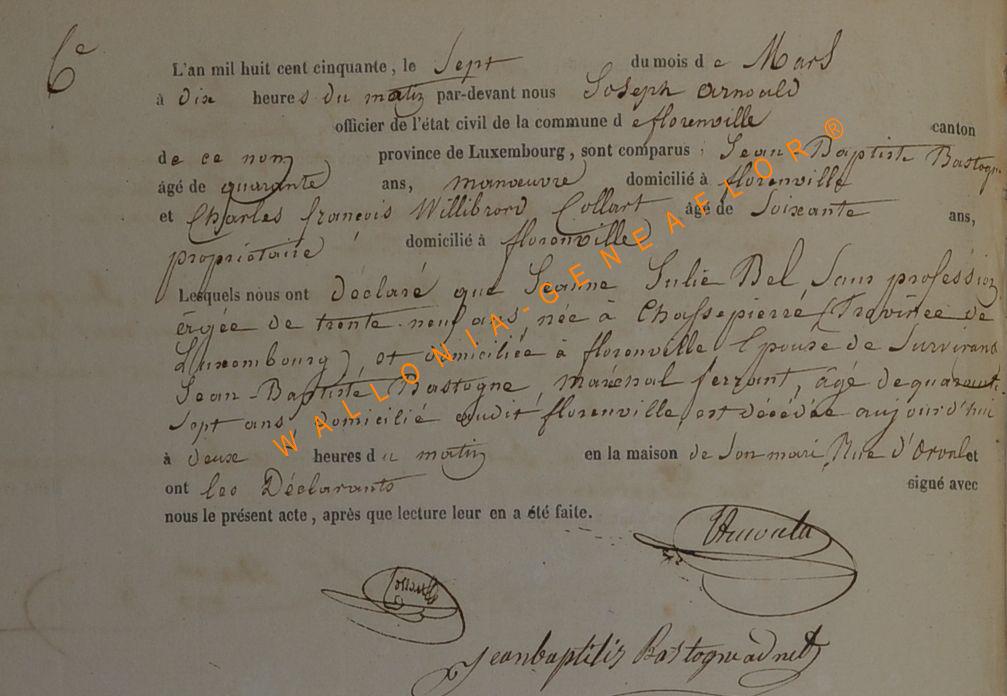 6e
L'an mil huit cent cinquante, le Sept du mois de Mars
à dix heures du matin par-devant nous Joseph Arnould
officier de l'état civil de la commune de florenville canton
de ce nom province de Luxembourg, sont comparus : Jean-Baptiste Bastogne
âgé de quarante ans, manœuvre domicilié à florenville
et Charles françois Willibrord Collart âgé de Soixante ans,
propriétaire domicilié à florenville
Lesquels nous ont déclaré que Jeanne Julie Bel Sans profession
âgée de trente-neuf ans, née à Chassepierre (Province de
Luxembourg) et domiciliée à florenville Epouse de Survivant
Jean-Baptiste Bastogne, maréchal ferrant, âgé de quarante
Sept ans, domicilié audit florenville, est décédée aujourd'hui
à deux heures du matin en la maison de Son mari, Rue d'Orval et
ont les Déclarants signé avec
nous le présent acte, après que lecture leur en a été faite.
Arnould
Collart
Jeanbaptiste Bastogne adnet
WALLONIA-GENEAFLOR®